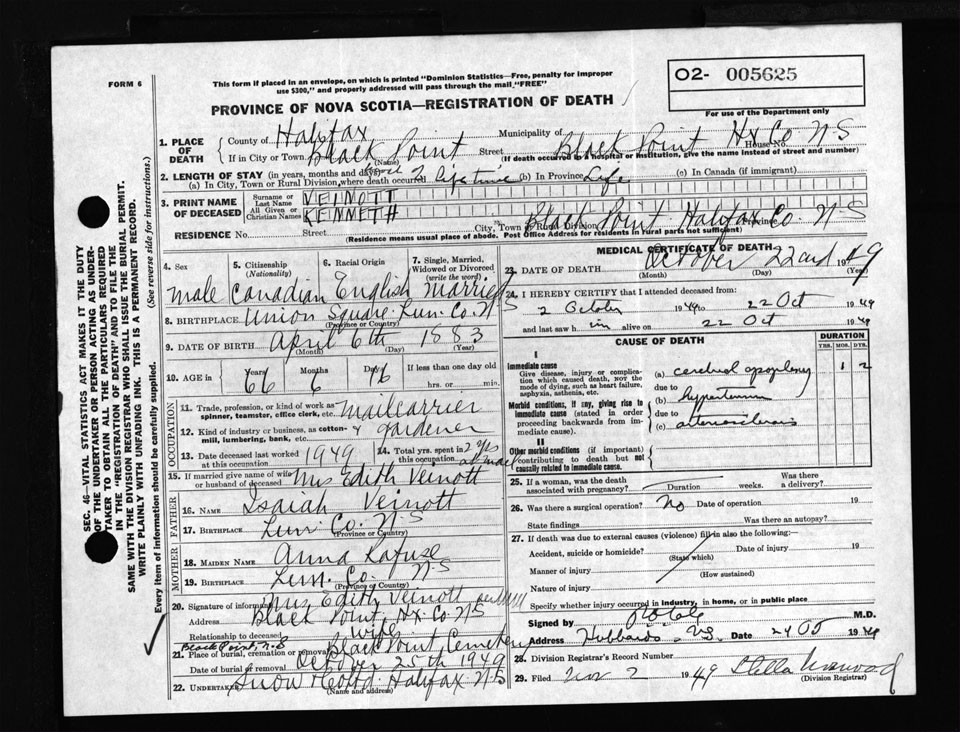 FORM 6
This form if placed in an envelope, on which is printed "Dominion Statistics—Free, penalty for improper
use $300," and properly addressed will pass through the mail, "FREE"
O2- 005625
For use of the Department only
PROVINCE OF NOVA SCOTIA—REGISTRATION OF DEATH
1. PLACE OF DEATH
County of Halifax Municipality of
If in City or Town Black Point Street Black Point Hx Co N-S House No.
(Name) (If death occurred in a hospital or institution, give the name instead of street and number)
2. LENGTH OF STAY (in years, months and days)
(a) In City, Town or Rural Division, where death occurred lifetime (b) In Province Life (c) In Canada (if immigrant)
3. PRINT NAME OF DECEASED
Surname or Last Name VEINOTT
All Given or Christian Names KENNETH
RESIDENCE No. Street City, Town or Rural Division Black Point Halifax Co. N-S Province
(Residence means usual place of abode. Post Office Address for residents in rural parts not sufficient)
4. Sex
5. Citizenship (Nationality)
6. Racial Origin
7. Single, Married, Widowed or Divorced (write the word)
male Canadian English Married
8. BIRTHPLACE Union Square Lun. Co. N-S
(Province or Country)
9. DATE OF BIRTH April 6th 1883
(Month) (Day) (Year)
10. AGE in Years 66 Months 6 Days 16 If less than one day old
hrs. or min.
OCCUPATION
11. Trade, profession, or kind of work as spinner, teamster, office clerk, etc. mailcarrier
12. Kind of industry or business, as cotton-mill, lumbering, bank, etc. & gardener
13. Date deceased last worked at this occupation 1949
14. Total yrs. spent in this occupation 2 yrs
15. If married give name of wife or husband of deceased Mrs Edith Veinott
FATHER
16. NAME Isaiah Veinott
17. BIRTHPLACE Lun. Co. N-S
(Province or Country)
MOTHER
18. MAIDEN NAME Anna Lafuse
19. BIRTHPLACE Lun. Co. N-S
(Province or Country)
20. Signature of informant Mrs Edith Veinott
Address Black Point Hx. Co N-S
Relationship to deceased wife
Black Point, N-S
21. Place of burial, cremation or removal Black Point Cemetery
Date of burial or removal October 25th 1949
22. UNDERTAKER Snow & Co Ltd. Halifax N-S
(Name and address)
MEDICAL CERTIFICATE OF DEATH
23. DATE OF DEATH October 22nd 1949
(Month) (Day) (Year)
24. I HEREBY CERTIFY that I attended deceased from:
2 October 1949 to 22 Oct 1949
and last saw him alive on 22 Oct 1949
CAUSE OF DEATH
DURATION
YRS. MOS. DYS.
I
Immediate cause
Give disease, injury or complication which caused death, NOT the mode of dying, such as heart failure, asphyxia, asthenia, etc.
(a) cerebral apoplexy 1 2
due to
Morbid conditions, if any, giving rise to immediate cause (stated in order proceeding backwards from immediate cause).
(b) hypertension
due to
(c) arteriosclerosis
II
Other morbid conditions (if important) contributing to death but not causally related to immediate cause.
25. If a woman, was the death associated with pregnancy? Duration weeks. Was there a delivery?
26. Was there a surgical operation? No Date of operation 19
State findings Was there an autopsy?
27. If death was due to external causes (violence) fill in also the following:
Accident, suicide or homicide? Date of injury 19
(State which)
Manner of injury
(How sustained)
Nature of injury
Specify whether injury occurred in industry, in home, or in public place
Signed by M.D.
Address Hubbards N.S. Date 24 Oct 1949
28. Division Registrar's Record Number
29. Filed Nov 2 1949 Stella
(Division Registrar)
SEC. 46—VITAL STATISTICS ACT MAKES IT THE DUTY
OF THE UNDERTAKER OR PERSON ACTING AS UNDER-
TAKER TO OBTAIN ALL THE PARTICULARS REQUIRED
IN THE "REGISTRATION OF DEATH" AND TO FILE THE
SAME WITH THE DIVISION REGISTRAR WHO SHALL ISSUE THE BURIAL PERMIT.
WRITE PLAINLY WITH UNFADING INK. THIS IS A PERMANENT RECORD.
Every item of information should be carefully supplied. (See reverse side for instructions.)